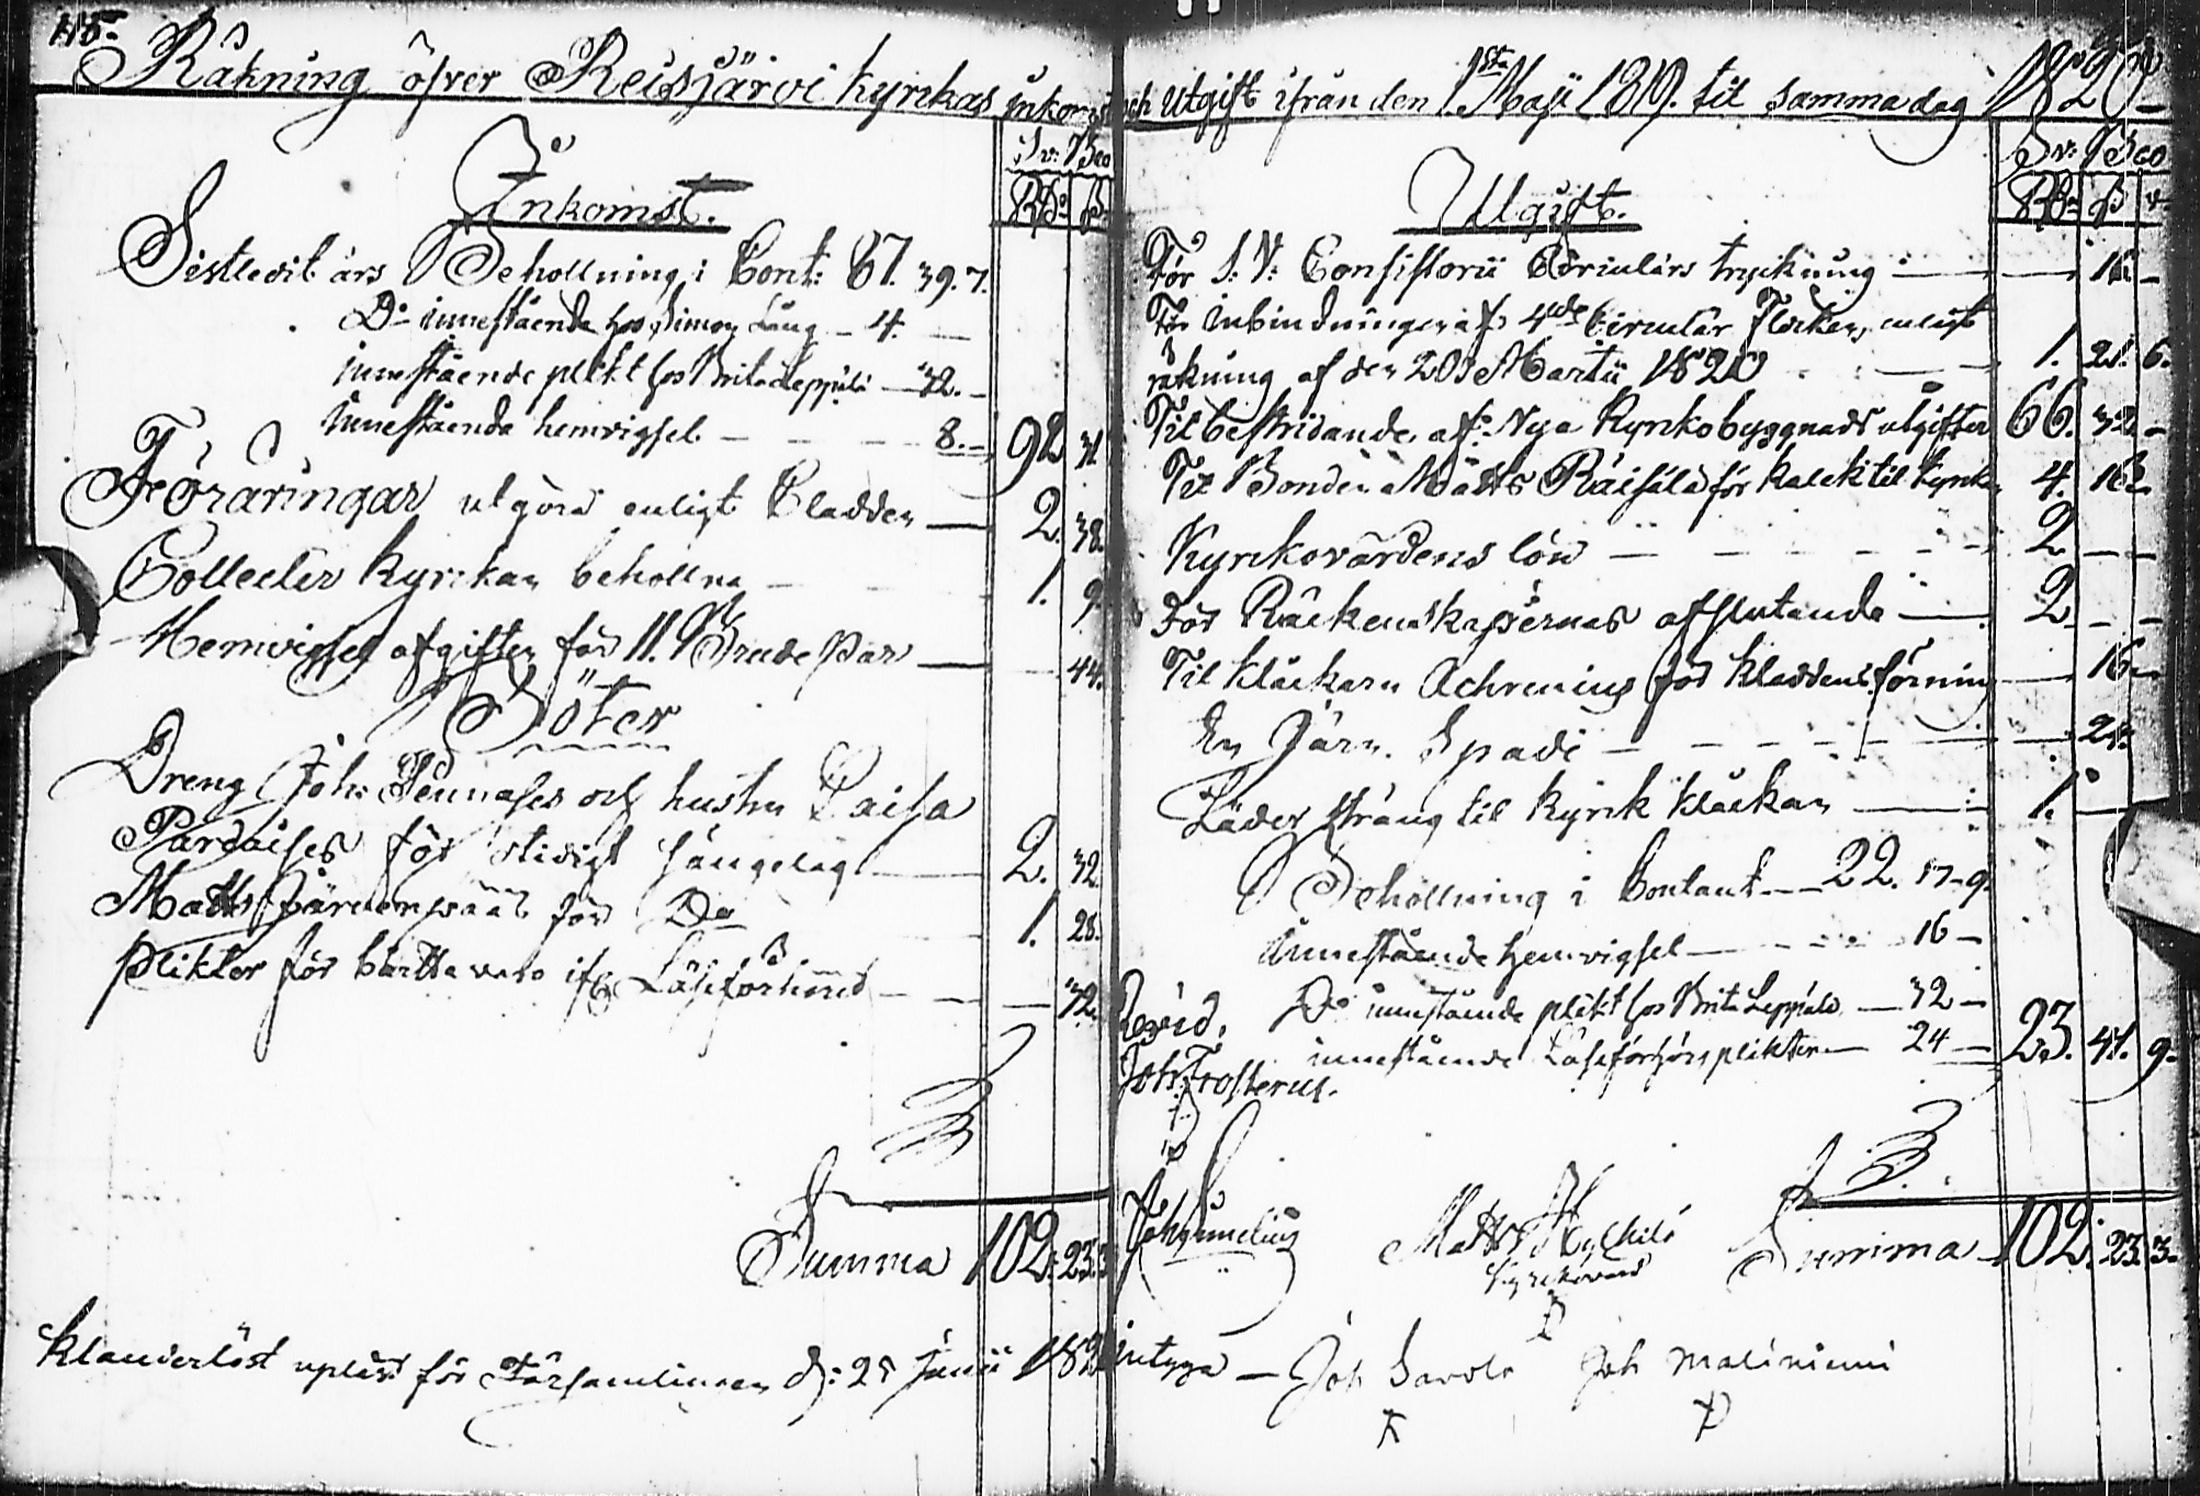 115.
Räkning öfver Reisjärvi kyrkas inkomst och Utgift ifrån den 1sta Maji 1819. til samma dag 1820
Inkomst.
Sv: Bco
Rd: ß
Sistledit års Behollning i Cont: 87. 39. 7.
Do innestående hos Simon Lång - 4. -
innestående plikt hos Brita Leppälä - 32. -
Innestående hemvigsel - - - 8. - 92 31
Föräringar utgöra enligt Cladden - 2. 38.
Collecter kyrkan behollna - 1. 9.
Hemvigsel afgifter för 11. Brude Par - 44.
Böter
Dreng Joh: Kinnases och hustru Caisa
Pardaises för otidigt sängelag - 2. 32
Matts Järvenpää för Do 1. 28.
Plikter för bortta varo ifr Läseförhöred - - 32.
Summa 102. 23. 3
Klanderlöst upläst för Församlingen d: 25 Junii 182
Utgift.
Sv: Bco
Rd: ß r
För S: V: Consistorii Cirkulärs tryckning - - 16 -
För inbindningen af 4de Circulär Flocken, enligt
räkning af den 20 Martii 1820 - - 1. 21. 6.
Til bestridande af Nya Kyrkobyggnads utgifter 66. 32 -
Til Bonden Matts Räisälä för kalck til kyrkan 4. 16.
Kyrkovärdens lön - - - - 2 - -
För Räckenskapernas afslutande - 2 - -
Til Kläckarn Achrenius för kladdens förning - 16 -
En Järn Spade - - - - - 24.
Läder sträng til kyrk kläckan - 1. -
Behollning i Contant - - 22. 17 - 9.
Innestående hemvigsel - - - 16 -
Do innestående plikt hos Brita Leppälä - 32 -
innestående Läseförhörs plikter - 24 - 23. 41. 9.
Revid.
Joh: Frosterus.
Matts Kyrkovärd
Summa 102. 23. 3.
intyga - Joh Savola Joh Maliniemi